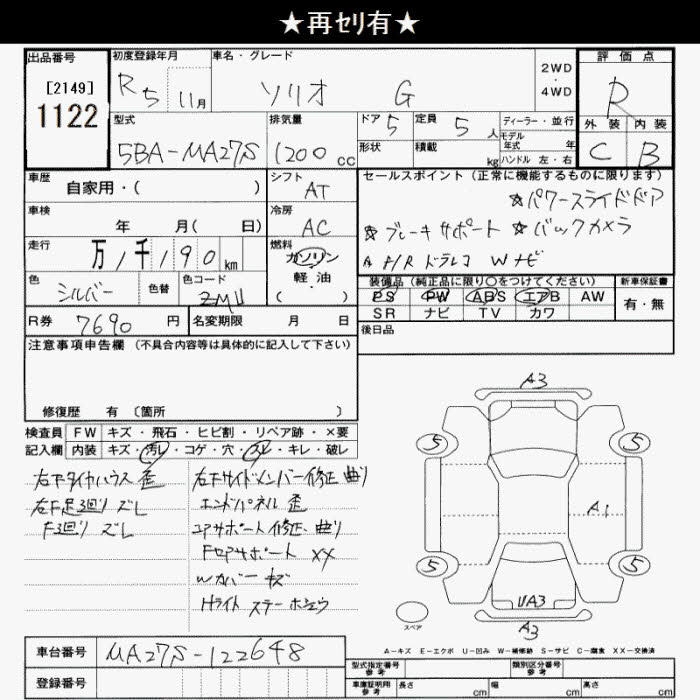 ★再ｾﾘ有★
出品番号
[2149]
1122
初度登録年月
R5 11月
車名・グレード
ソリオ G
2WD
・
4WD
評価点
R
外装 内装
C B
型式
5BA-MA27S
排気量
1200 cc
ドア
5
定員
5 人
形状
積載
kg
ディーラー・並行
モデル
年式 年
ハンドル 左・右
車歴
自家用・( )
シフト
AT
車検
年 月( 日)
冷房
AC
走行
万1千190km
燃料
ガソリン
軽・油
( )
色
シルバー
色替
色コード
ZMU
R券
7690 円
名変期限 月 日
セールスポイント (正常に機能するものに限ります)
☆パワースライドドア
☆ブレーキサポート ☆バックカメラ
F/R ドラレコ Wナビ
装備品 (純正品に限り○をつけてください)
新車保証書
PS PW ABS エアB AW
SR ナビ TV カワ
有・無
後日品
注意事項申告欄 (不具合内容等は具体的に記入して下さい)
修復歴 有 (箇所 )
検査員
記入欄
FW キズ・飛石・ヒビ割・リペア跡・×要
内装 キズ・汚レ・コゲ・穴・スレ・キレ・破レ
右Fタイヤハウス 歪
右F足回り ズレ
F3回り ズレ
右Fサイドメンバー修正 曲り
エンドパネル 歪
コアサポート修正 曲り
Fロアサポート XX
Wカバー キズ
Hライト ステー
A3
5 5
A1
5 5
UA3
A3
スペア
A－キズ E－エクボ U－凹み W－補修跡 S－サビ C－腐食 XX－交換済
車台番号
MA27S-122648
登録番号
型式指定番号
参考
類別区分番号
参考
車庫証明用
参考
長さ cm 幅 cm 高さ cm